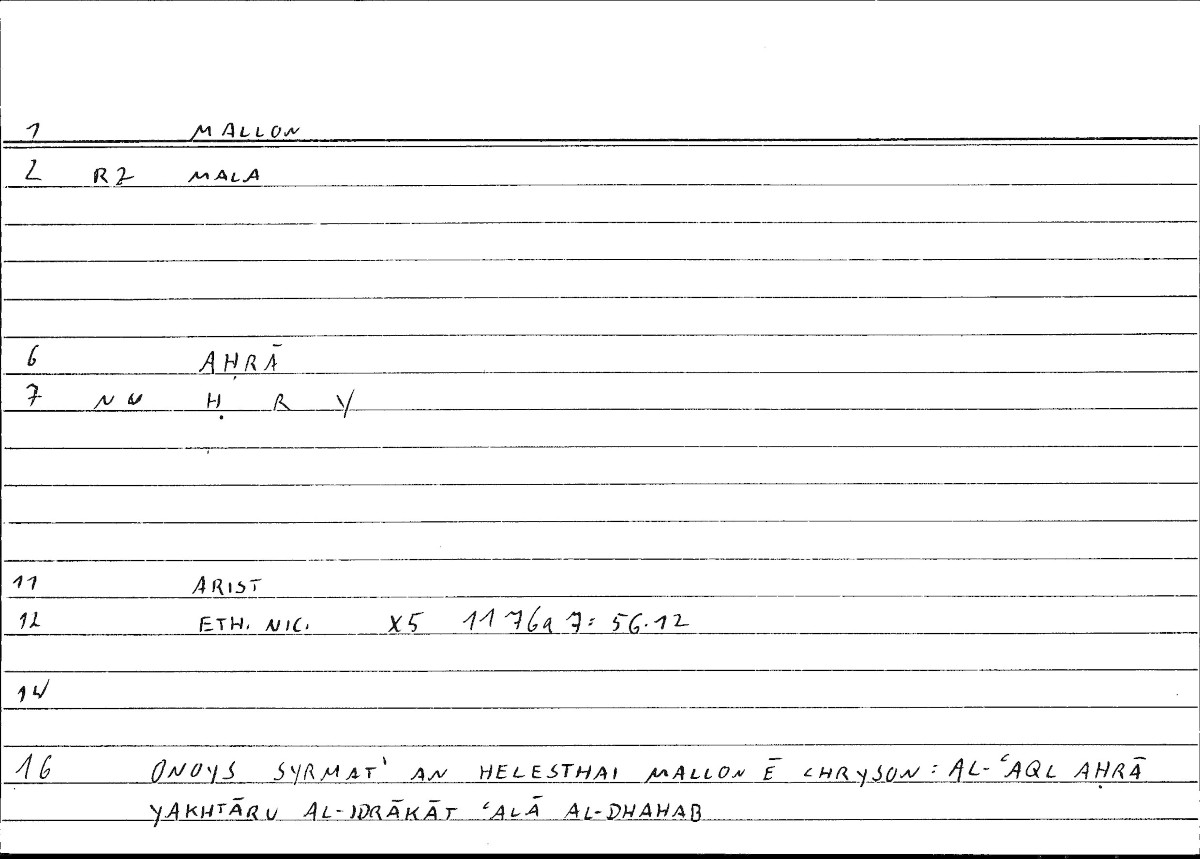 1 MALLON
2 RZ MALA
6 AḤRĀ
7 NN Ḥ R Y
11 ARIST
12 ETH. NIC. X5 1176a7: 56.12
14
16 ONOYS SYRMAT' AN HELESTHAI MALLON Ē CHRYSON: AL-ʿAQL AḤRĀ
YAKHTĀRU AL-IDRĀKĀT ʿALĀ AL-DHAHAB